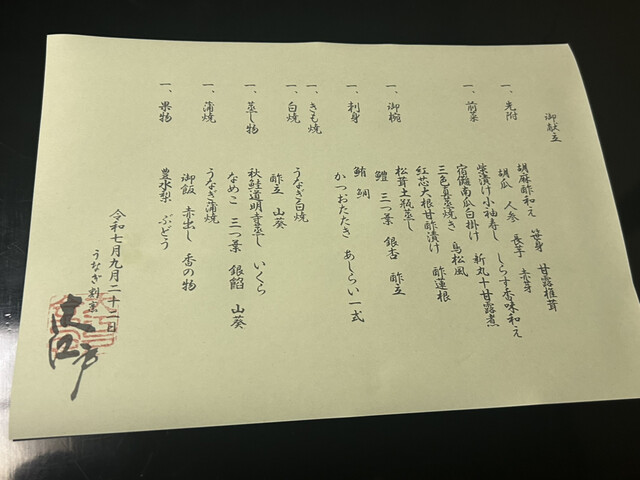 御献立
一、先附
胡麻酢和え 笹身 甘露椎茸
胡瓜 人参 長芋 赤芽
一、前菜
柴漬け小袖寿し しらす香味和え
宿儺南瓜白掛け 新丸十甘露煮
三色真蒸焼き 鳥松風
紅芯大根甘酢漬け 酢蓮根
一、御椀
松茸土瓶蒸し
鱧 三つ葉 銀杏 酢立
一、刺身
鮪 鯛
かつおたたき あしらい一式
一、きも焼
一、白焼
うなぎ白焼
酢立 山葵
一、蒸し物
秋鮭道明寺蒸し いくら
なめこ 三つ葉 銀餡 山葵
一、蒲焼
うなぎ蒲焼
御飯 赤出し 香の物
一、果物
豊水梨 ぶどう
令和七月九月二十二日
うなぎ割烹